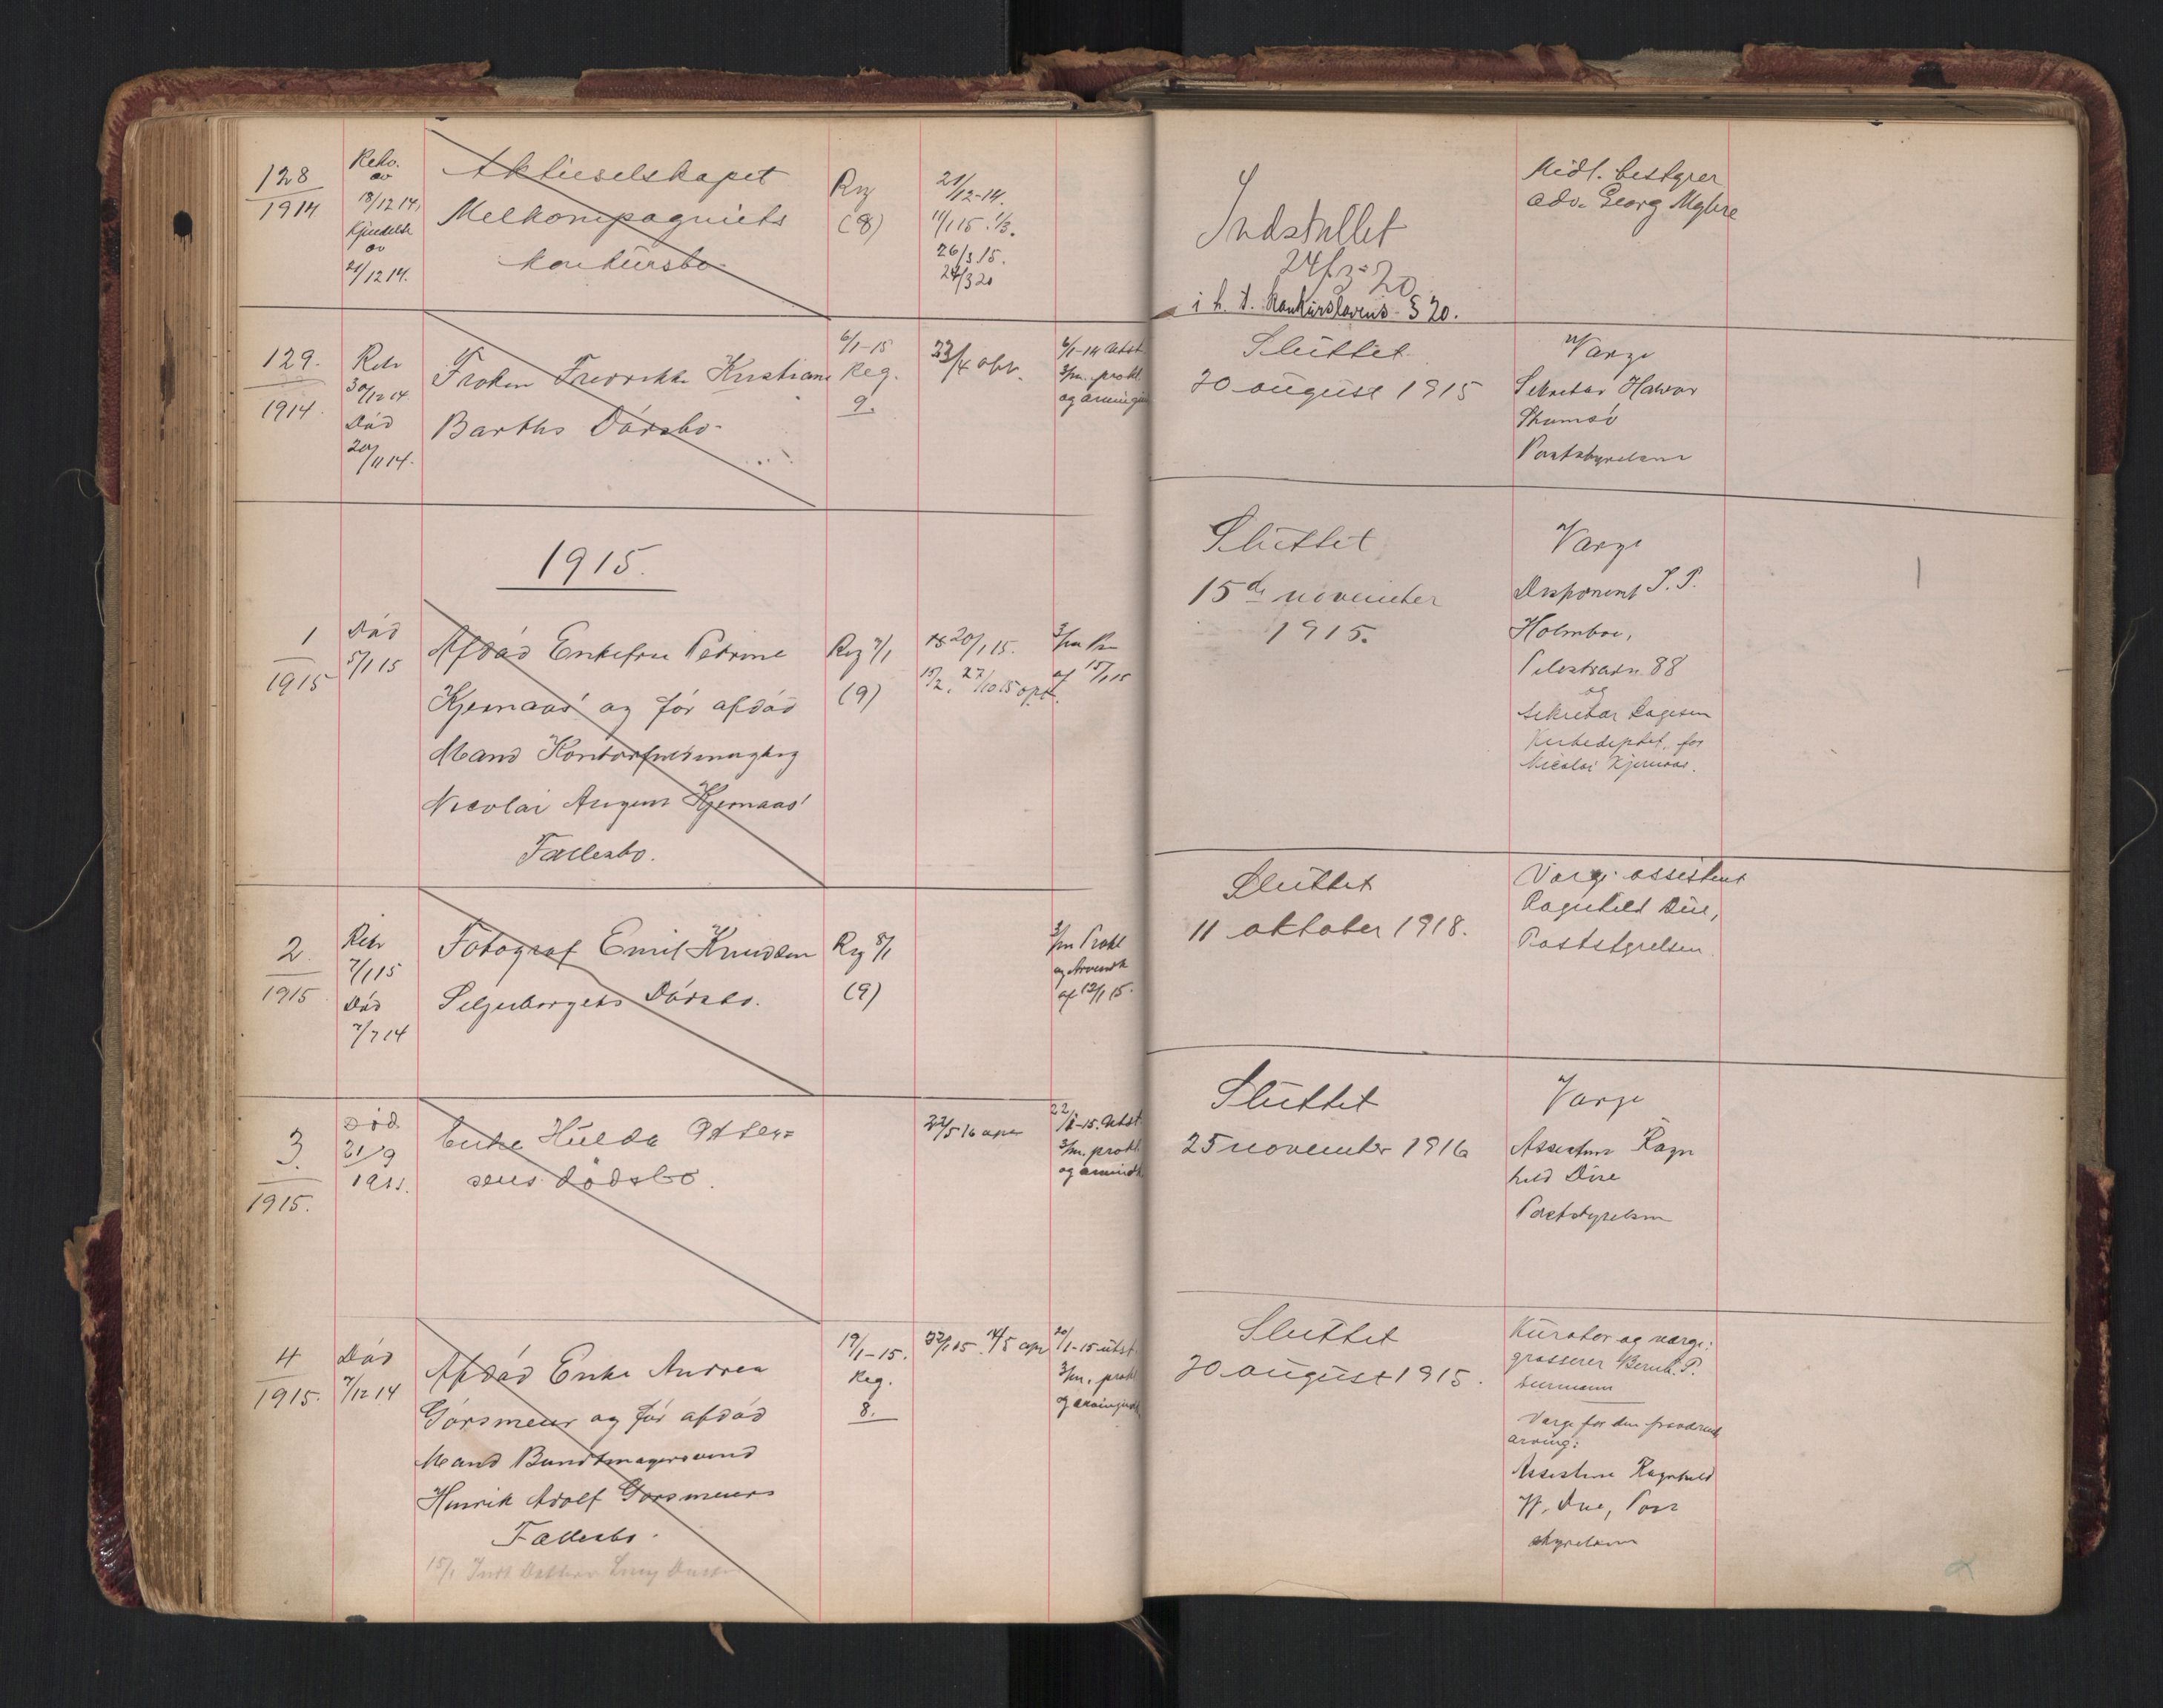 128
1914
Rekv.
av
18/12 14,
Kjendelse
av
21/12 14.
Aktieselskapet
Melkompagniets
konkursbo
Reg
(8)
21/12-14.
11/1 15. 1/3.
26/3 15.
24/3 20
Indstillet
24/3-20
i h. t. Konkurslovens § 20.
Midl. bestyrer
adv. Georg Myhre
129.
1914.
Rekv
30/12 14
Død
20/11 14.
Frøken Fredrikke Kristiane
Barths Dødsbo
6/1-15
Reg.
9.
23/4 opr.
6/1-14 Utst
3/m. prokl.
og
Sluttet
30 august 1915
Værge
Sekretær Halvor
Poststyrelsen
1915.
1
1915
Død
5/1 15
Afdød Enkefru Petrine
Kjernaas' og før afdød
Mand Kontorfuldmægtig
Nicolai August Kjernaas'
Fællesbo.
Reg 7/1
(9)
20/1 15.
15/2. 27/10 15 opr.
3/m Pr
af 15/1 15
Sluttet
15de november
1915.
Værge
Disponent J. P.
Holmboe,
Pilestrædet 88
og
Sekretær
Kirkedeptet, for
Nicolai Kjernaas.
2.
1915
Rekv
7/1 15
Død
7/7 14
Fotograf Emil Knudsen
Seljeborgets Dødsbo.
Reg 8/1
(9)
3/m Prokl
og Arveindk
af 12/1 15.
Sluttet
11 oktober 1918.
Værge: assistent
Ragnhild Due,
Poststyrelsen.
3.
1915.
Død.
21/9
Enke Hulda Petter=
sens dødsbo.
22/5 16 opr
22/1-15. Utst
3/m. prokl.
og arveindk
Sluttet
25 november 1916
Værge
Assistent Ragn
hild Due
Poststyrelsen
4
1915.
Død
7/12 14
Afdød Enke Andrea
Görsmeur og før afdød
Mand Buntmagersvend
Henrik Adolf Görsmeurs
Fællesbo.
15/1
19/1-15.
Reg.
8.
22/1 15. 14/5 opr
20/1-15 utst.
3/m. prokl
og
Sluttet
30 august 1915.
Kurator og værge:
grosserer Bernh. P.
Værge for den fraværende
arving:
Assistent Ragnhild
H. Due, Post
styrelsen